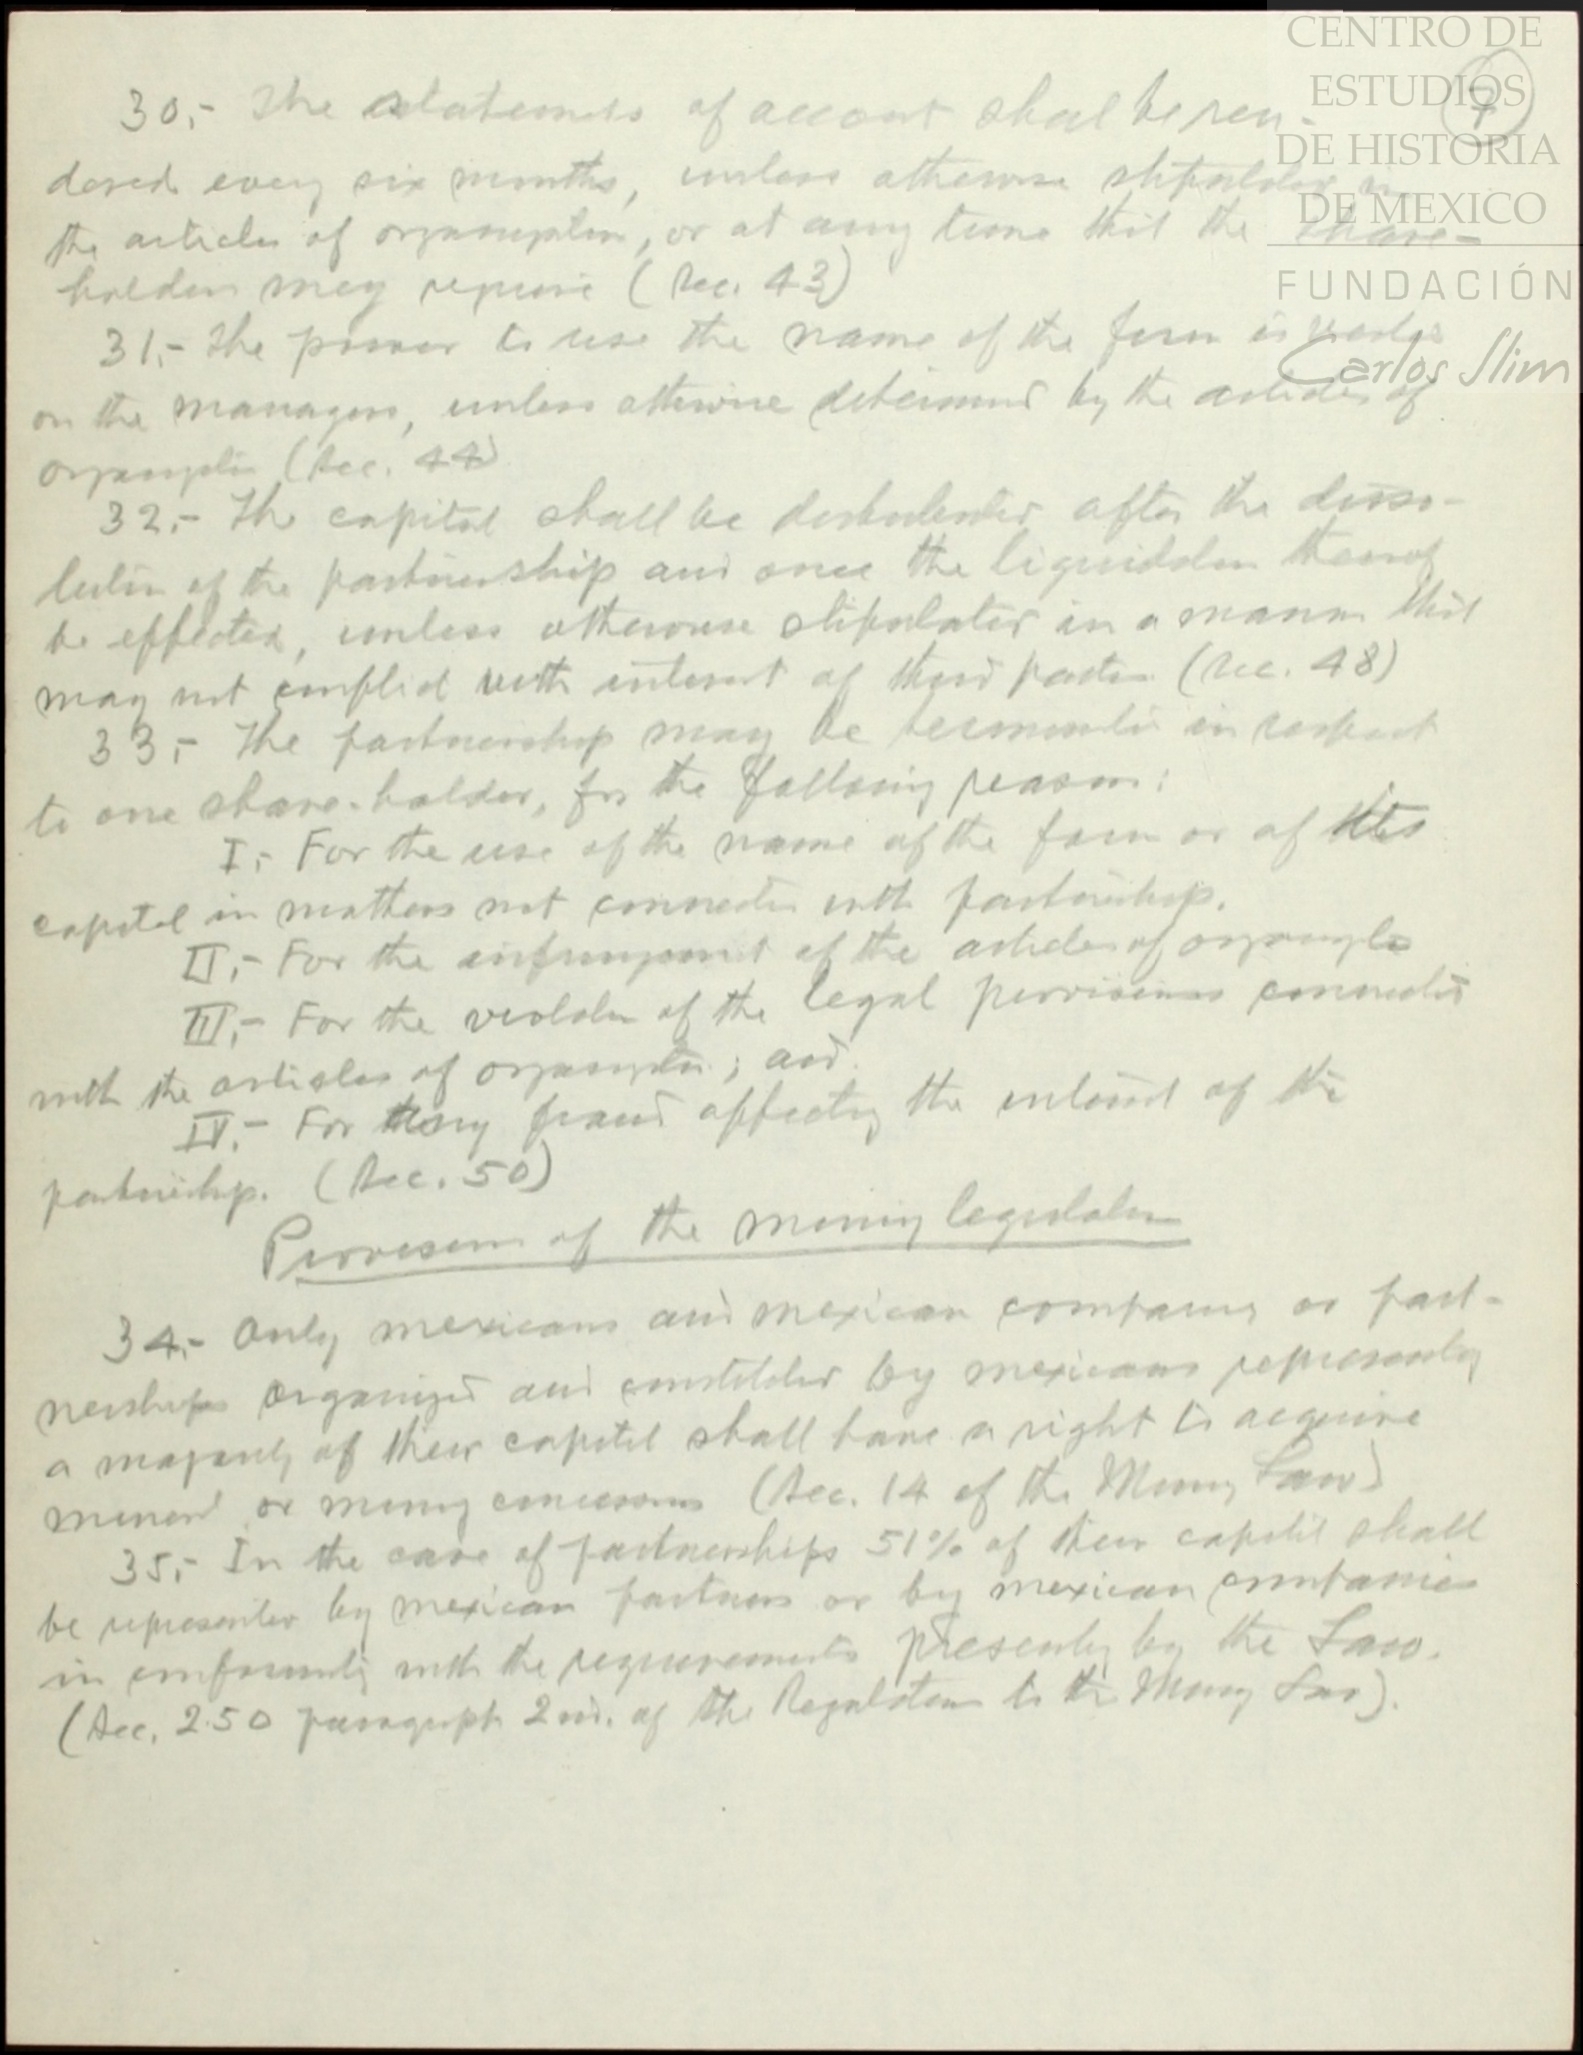 CENTRO DE
ESTUDIOS
DE HISTORIA
DE MEXICO
FUNDACIÓN
Carlos Slim
7
30.- The statements of account shall be ren-
dered every six months, unless otherwise stipulated in
the articles of organization, or at any time that the share-
holders may require (Sec. 43)
31.- The power to use the name of the firm is vested
on the managers, unless otherwise determined by the articles of
organization (Sec. 44)
32.- The capital shall be distributed after the disso-
lution of the partnership and once the liquidation thereof
be effected, unless otherwise stipulated in a manner that
may not conflict with interest of third parties (Sec. 48)
33.- The partnership may be terminated in respect
to one share-holder, for the following reasons:
I.- For the use of the name of the firm or of its
capital in matters not connected with partnership.
II.- For the infringement of the articles of organization
III.- For the violation of the legal provisions connected
with the articles of organization; and
IV.- For any fraud affecting the interest of the
partnership. (Sec. 50)
Provisions of the mining legislation
34.- Only mexicans and mexican companies or part-
nerships organized and constituted by mexicans representing
a majority of their capital shall have a right to acquire
mines or mining concessions (Sec. 14 of the Mining Law)
35.- In the case of partnerships 51% of their capital shall
be represented by mexican partners or by mexican companies
in conformity with the requirements by the Law.
(Sec. 250 paragraph 2nd. of the Regulations to the Mining Law).